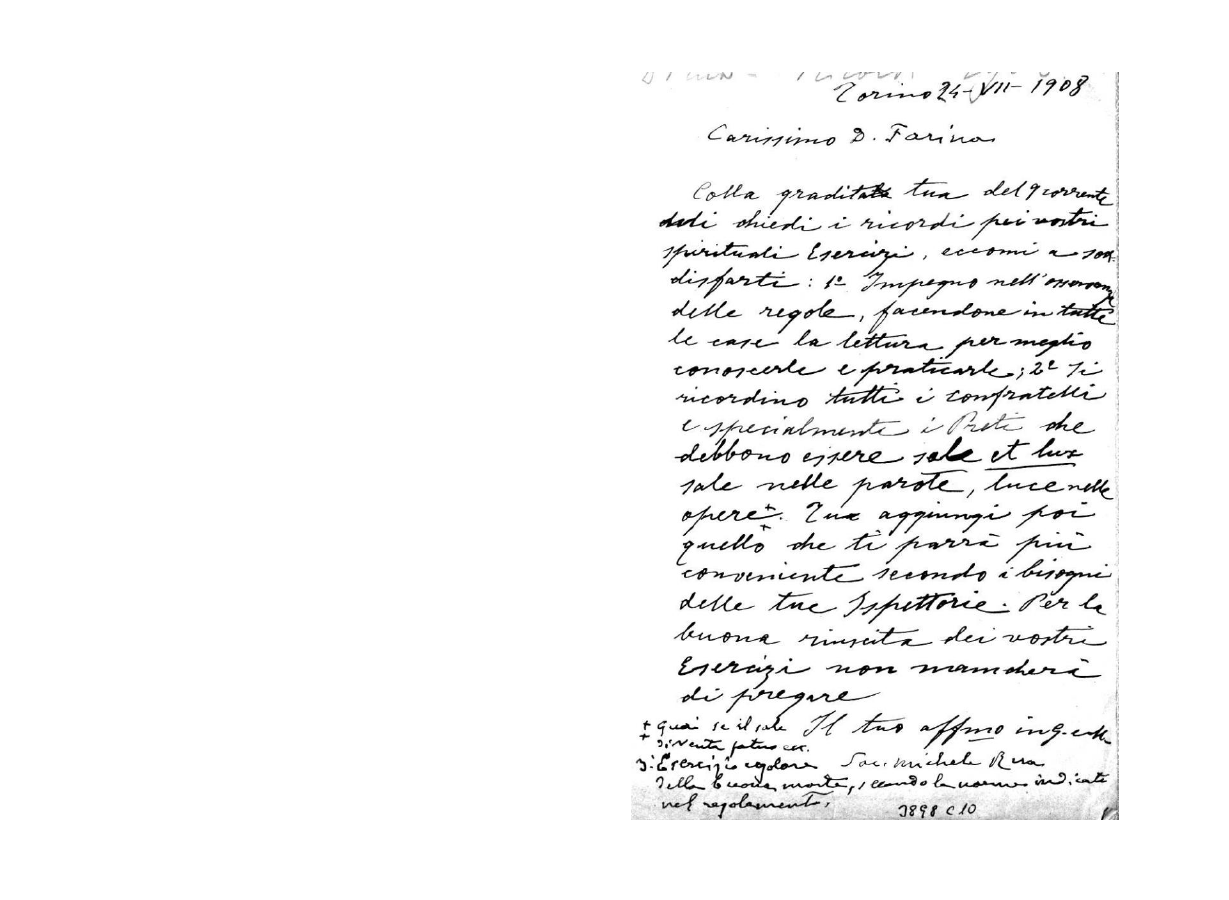 Torino 24-VII-1908
Carissimo D. Farina
Colla gradita tua del 9 corrente
chiedi i ricordi pei vostri
spirituali Esercizi, eccomi a sod-
disfarti: 1º Impegno nell'osservanza
delle regole, facendone in tutte
le case la lettura per meglio
conoscerle e praticarle; 2º Si
ricordino tutti i confratelli
e specialmente i Preti che
debbono essere sale et lux
sale nelle parole, luce nelle
opere ‡. Tu aggiungi poi
quello che ti parrà più
conveniente secondo i bisogni
delle tue Ispettorie. Per la
buona riuscita dei vostri
Esercizi non mancherà
di pregare
Il tuo affmo in G. e M.
Sac. Michele Rua
‡ Guai se il sale
diventa fatuo ecc.
3º Esercizio regolare
della buona morte, secondo le norme indicate
nel regolamento.
3898 C 10